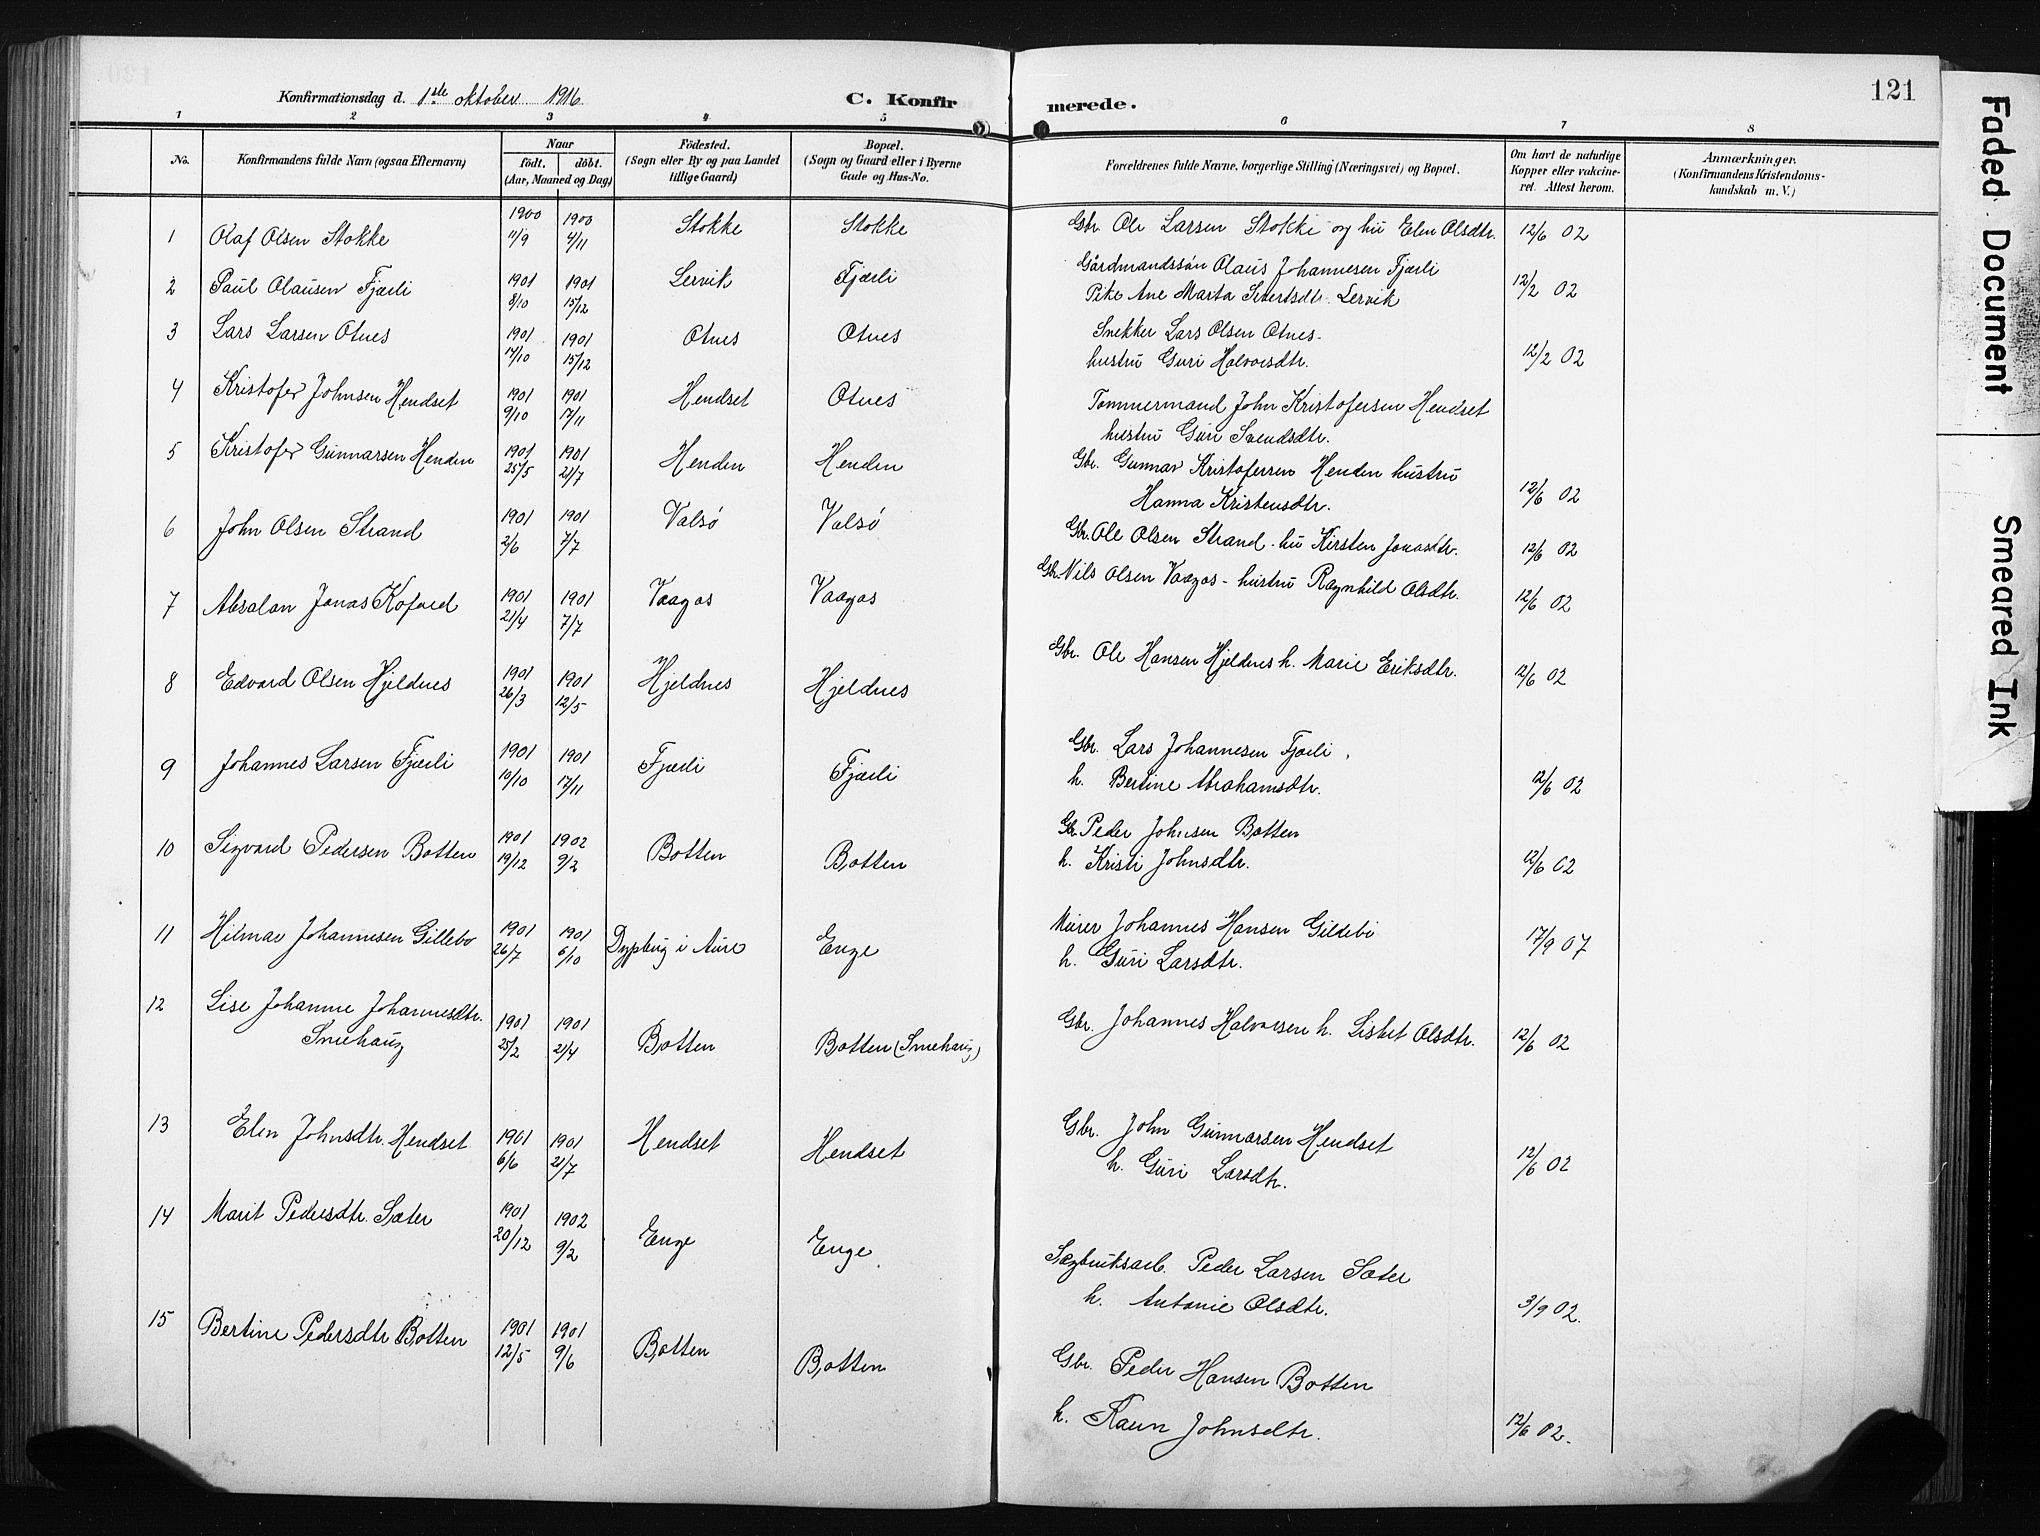 Konfirmationsdag d. 1ste oktober 1916. C. Konfir merede. 121
1 2 3 4 5 6 7 8
No. Konfirmandens fulde Navn (ogsaa Efternavn) Naar født. døbt. (Aar, Maaned og Dag) Fødested. (Sogn eller By og paa Landet tillige Gaard) Bopæl. (Sogn og Gaard eller i Byerne Gade og Hus-No. Forældrenes fulde Navne, borgerlige Stilling (Næringsvei) og Bopæl. Om havt de naturlige Kopper eller vakcineret. Attest herom. Anmærkninger. (Konfirmandens Kristendomskundskab m. V.)
1 Olaf Olsen Stokke 1900 11/9 1900 4/11 Stokke Stokke Gbr. Ole Larsen Stokke og hu Elen Olsdtr. 12/6 02
2 Paul Olausen Fjærli 1901 8/10 1901 15/12 Lervik Fjærli Gårdmandssøn Olaus Johannesen Fjærli
Pike Ane Marta Sivertsdtr. Lervik 12/2 02
3 Lars Larsen Otnes 1901 17/10 1901 15/12 Otnes Otnes Snekker Lars Olsen Otnes-
hustru Guri Halvorsdtr. 12/2 02
4 Kristofer Johnsen Hendset 1901 9/10 1901 17/11 Hendset Otnes Tømmermand John Kristofersen Hendset
hustru Guri Svendsdtr.
5 Kristofer Gunnarsen Henden 1901 25/5 1901 21/7 Henden Henden Gbr. Gunnar Kristofersen Henden hustru
Hanna Kristensdtr. 12/6 02
6 John Olsen Strand 1901 2/6 1901 7/7 Valsø Valsø Gbr. Ole Olsen Strand. hu Kirsten Jonasdtr. 12/6 02
7 Absalon Jonas Kofoed 1901 21/4 1901 7/7 Vaagos Vaagos Gbr. Nils Olsen Vaagos - hustru Ragnhild Olsdtr. 12/6 02
8 Edvard Olsen Hjeldnes 1901 26/3 1901 12/5 Hjeldnes Hjeldnes Gbr. Ole Hansen Hjeldnes h. Marie Eriksdtr. 12/6 02
9 Johannes Larsen Fjærli 1901 10/10 1901 17/11 Fjærli Fjærli Gbr. Lars Johannesen Fjærli,
h. Bertine Abrahamsdtr. 12/6 02
10 Sigvard Pedersen Botten 1901 19/12 1902 9/2 Botten Botten Gbr. Peder Johnsen Botten
h. Kristi Johnsdtr. 12/6 02
11 Hilmar Johannesen Gillebo 1901 26/7 1901 6/10 i Aure Enge Murer Johannes Hansen Gildebo
h. Guri Larsdtr. 17/9 07
12 Lise Johanne Johannesdtr. Smehaug 1901 25/2 1901 21/4 Botten Botten (Smehaug) Gbr. Johannes Halvorsen h. Lisbet Olsdtr. 12/6 02
13 Elen Johnsdtr. Hendset 1901 6/6 1901 21/7 Hendset Hendset Gbr. John Gunnarsen Hendset
h. Guri Larsdtr. 12/6 02
14 Marit Pedersdtr. Sæter 1901 20/12 1902 9/2 Enge Enge Sagbruksarb. Peder Larsen Sæter
h. Antonie Olsdtr. 3/9 02.
15 Bertine Pedersdtr Botten 1901 12/5 1901 9/6 Botten Botten Gbr. Peder Hansen Botten
h. Karen Johnsdtr. 12/6 02.
Faded Document
Smeared Ink